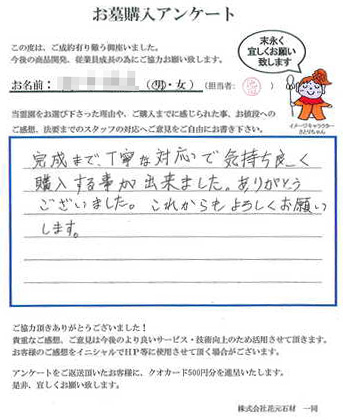 お墓購入アンケート
この度は、ご成約有り難う御座いました。
今後の商品開発、従業員成長の為にご協力お願い致します。
末永く
宜しくお願い
致します
お名前: (男・女) (担当者: )
イメージキャラクター
さとりちゃん
当霊園をお選び下さった理由や、ご購入までに感じられた事、お値段への
ご感想、法要までのスタッフの対応へご意見をご自由にお書き下さい。
完成まで、丁寧な対応で気持ち良く
購入する事が出来ました。ありがとう
ございました。これからもよろしくお願い
します。
ご協力頂きありがとうございました!
貴重なご感想、ご意見は今後のより良いサービス・技術向上のため活用させて頂きます。
お客様のご感想をイニシャルでHP等に使用させて頂く場合がございます。
アンケートをご返送頂いたお客様に、クオカード500円分を進呈いたします。
是非、宜しくお願い致します。
株式会社花元石材 一同